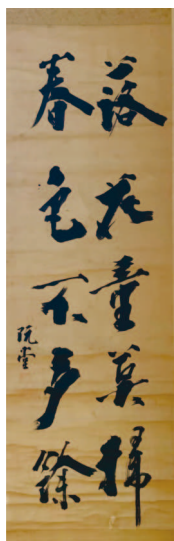 落花童莫掃
春色不多餘
阮堂